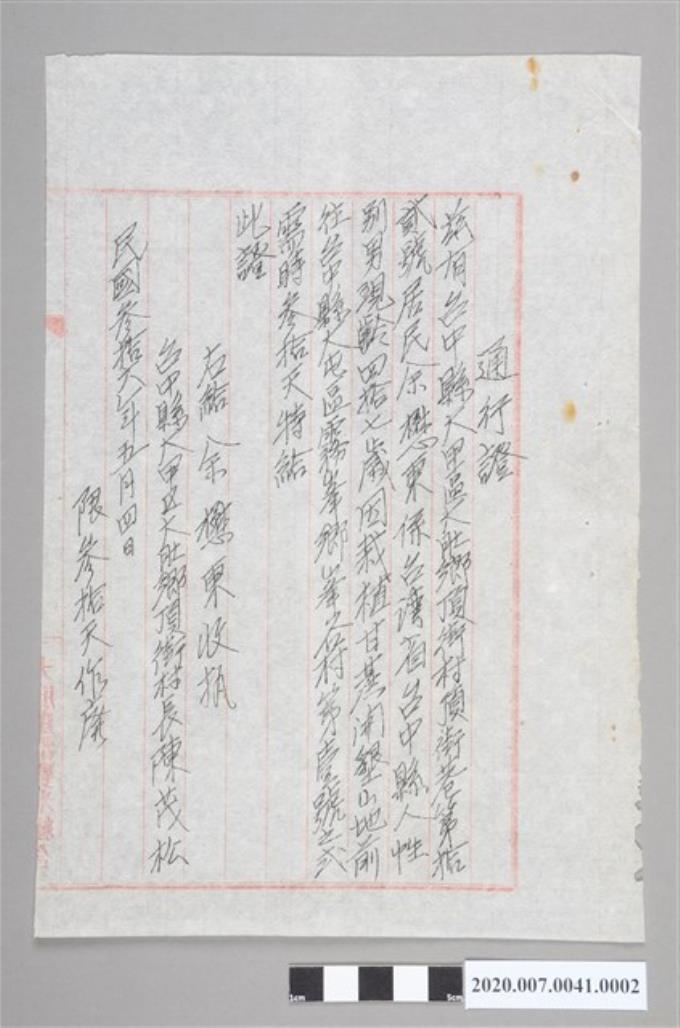 通行證
茲有台中縣大甲區大肚鄉頂街村頂街巷第拾
貳號居民余懋東係台灣省台中縣人性
別男現齡四拾七歲因栽植甘蔗開墾山地前
往台中縣大屯區霧峯鄉峯之村第壹號之弍
需時叁拾天特給
此證
右給余懋東收執
台中縣大甲区大肚鄉頂街村長陳茂松
民國叁拾六年五月四日
限叁拾天作廢
2020.007.0041.0002
1cm
5cm